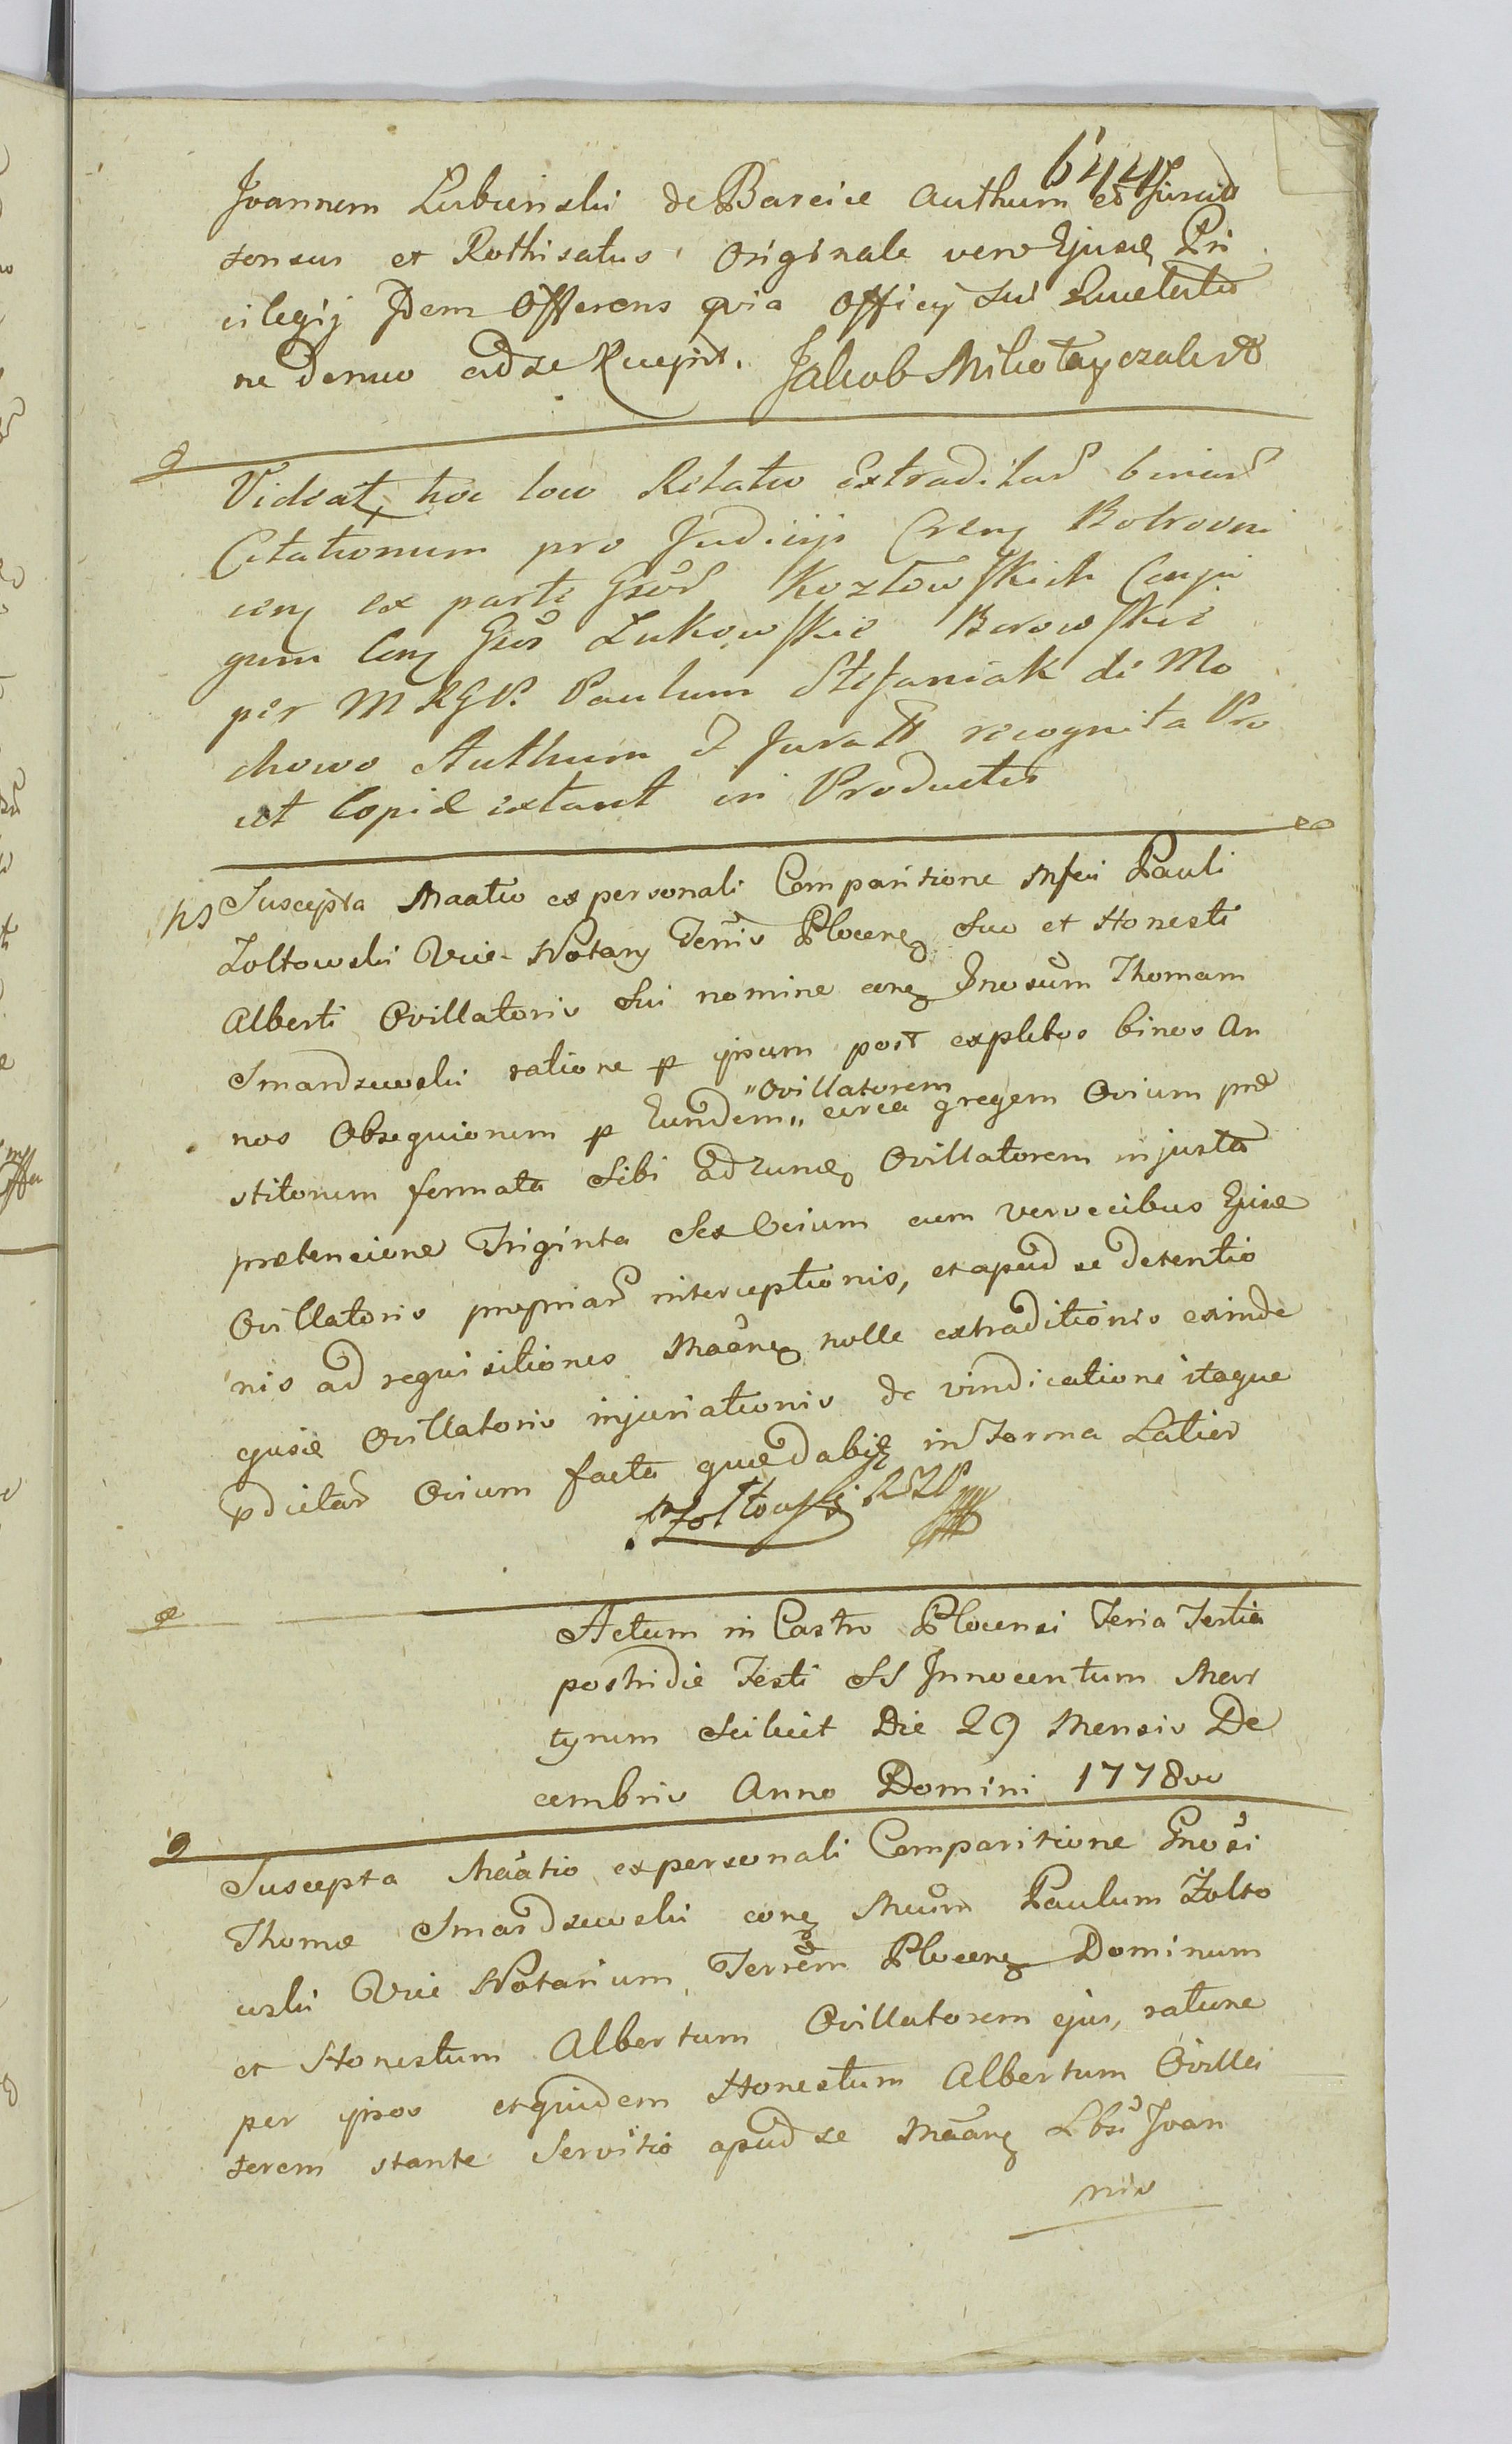 644
Joannem Lubinski de Barcice Authum et Jurat
tensus et Rothisatus, Originale vero Ejusd Pri
vilegij Idem Offerens qvia Officij Sui Quietatio
ne denuo ad se Recepit. Jakob Mikołayczak
Videat hoc loco Relatio Extraditar binar
Citationum pro Judicijs Cren Bobrovni
cen ex parte Gsor Kozłowskich Conju
gum Con Gsos Zukowskie Borowskie
per M R G P. Paulum Stefaniak de Mo
chowo Authum & Juratt recognita Pro
ut Copiæ extant in Productis
ns Suscepta Maatio ex personali Comparitione Mfci Pauli
Zoltowski Vice-Notary Terris Plocen Suo et Honesti
Alberti Ovillatoris Sui nomine con Gnosum Thomam
Smardzewski ratione p ipsum post expletos binos An
nos Obsequiorum p Eundem „ circa gregem Ovium præ
"Ovillatorem
stitorum formata Sibi ad eund Ovillatorem injusta
prætencione Triginta Sex Ovium cum vervecibus Ejusd
Ovillatoris propriar interceptionis, et apud se detentio
nis ad requisitiones Maan nolle extraditionis exinde
ejusd Ovillatoris injuriationis de vindicatione itaque
pdictar Ovium facta quæ dabit in Forma Latior
P Zoltowski
Actum in Castro Plocensi Feria Tertia
postridie Festi SS Innocentum Mar
tyrum Scilicet Die 29 Mensis De
cembris Anno Domini 1778
Suscepta Maatio ex personali Comparitione Gnosi
Thomæ Smardzewski con Mcum Paulum Zolto
wski Vice Notarium Terrem Plocen Dominum
et Honestum Albertum Ovillatorem ejus, ratione
per ipsos et quidem Honestum Albertum Ovilla
torem stante Servitio apud se Maan Lbsi Joan
nis